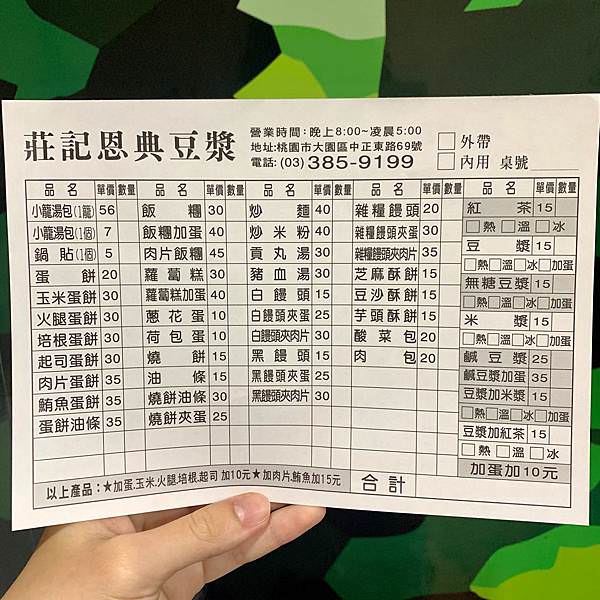 莊記恩典豆漿
營業時間：晚上8:00~凌晨5:00
地址:桃園市大園區中正東路69號
電話: (03) 385-9199
□外帶
□內用 桌號
品名 單價 數量
小籠湯包(1籠) 56
小籠湯包(1個) 7
鍋貼(1個) 5
蛋餅 20
玉米蛋餅 30
火腿蛋餅 30
培根蛋餅 30
起司蛋餅 30
肉片蛋餅 35
鮪魚蛋餅 35
蛋餅油條 35
品名 單價 數量
飯糰 30
飯糰加蛋 40
肉片飯糰 45
蘿蔔糕 30
蘿蔔糕加蛋 40
蔥花蛋 10
荷包蛋 10
燒餅 15
油條 15
燒餅油條 30
燒餅夾蛋 25
品名 單價 數量
炒麵 40
炒米粉 40
貢丸湯 30
豬血湯 30
白饅頭 15
白饅頭夾蛋 25
白饅頭夾肉片 30
黑饅頭 15
黑饅頭夾蛋 25
黑饅頭夾肉片 30
品名 單價 數量
雜糧饅頭 20
雜糧饅頭夾蛋 30
雜糧饅頭夾肉片 35
芝麻酥餅 15
豆沙酥餅 15
芋頭酥餅 15
酸菜包 20
肉包 20
品名 單價 數量
紅茶 15
□熱□溫□冰
豆漿 15
□熱□溫□冰□加蛋
無糖豆漿 15
□熱□溫□冰□加蛋
米漿 15
□熱□溫□冰□加蛋
鹹豆漿 25
鹹豆漿加蛋 35
豆漿加米漿 15
□熱□溫□冰□加蛋
豆漿加紅茶 15
□熱□溫□冰
加蛋加10元
以上產品：★加蛋,玉米,火腿,培根,起司 加10元★加肉片,鮪魚加15元
合計